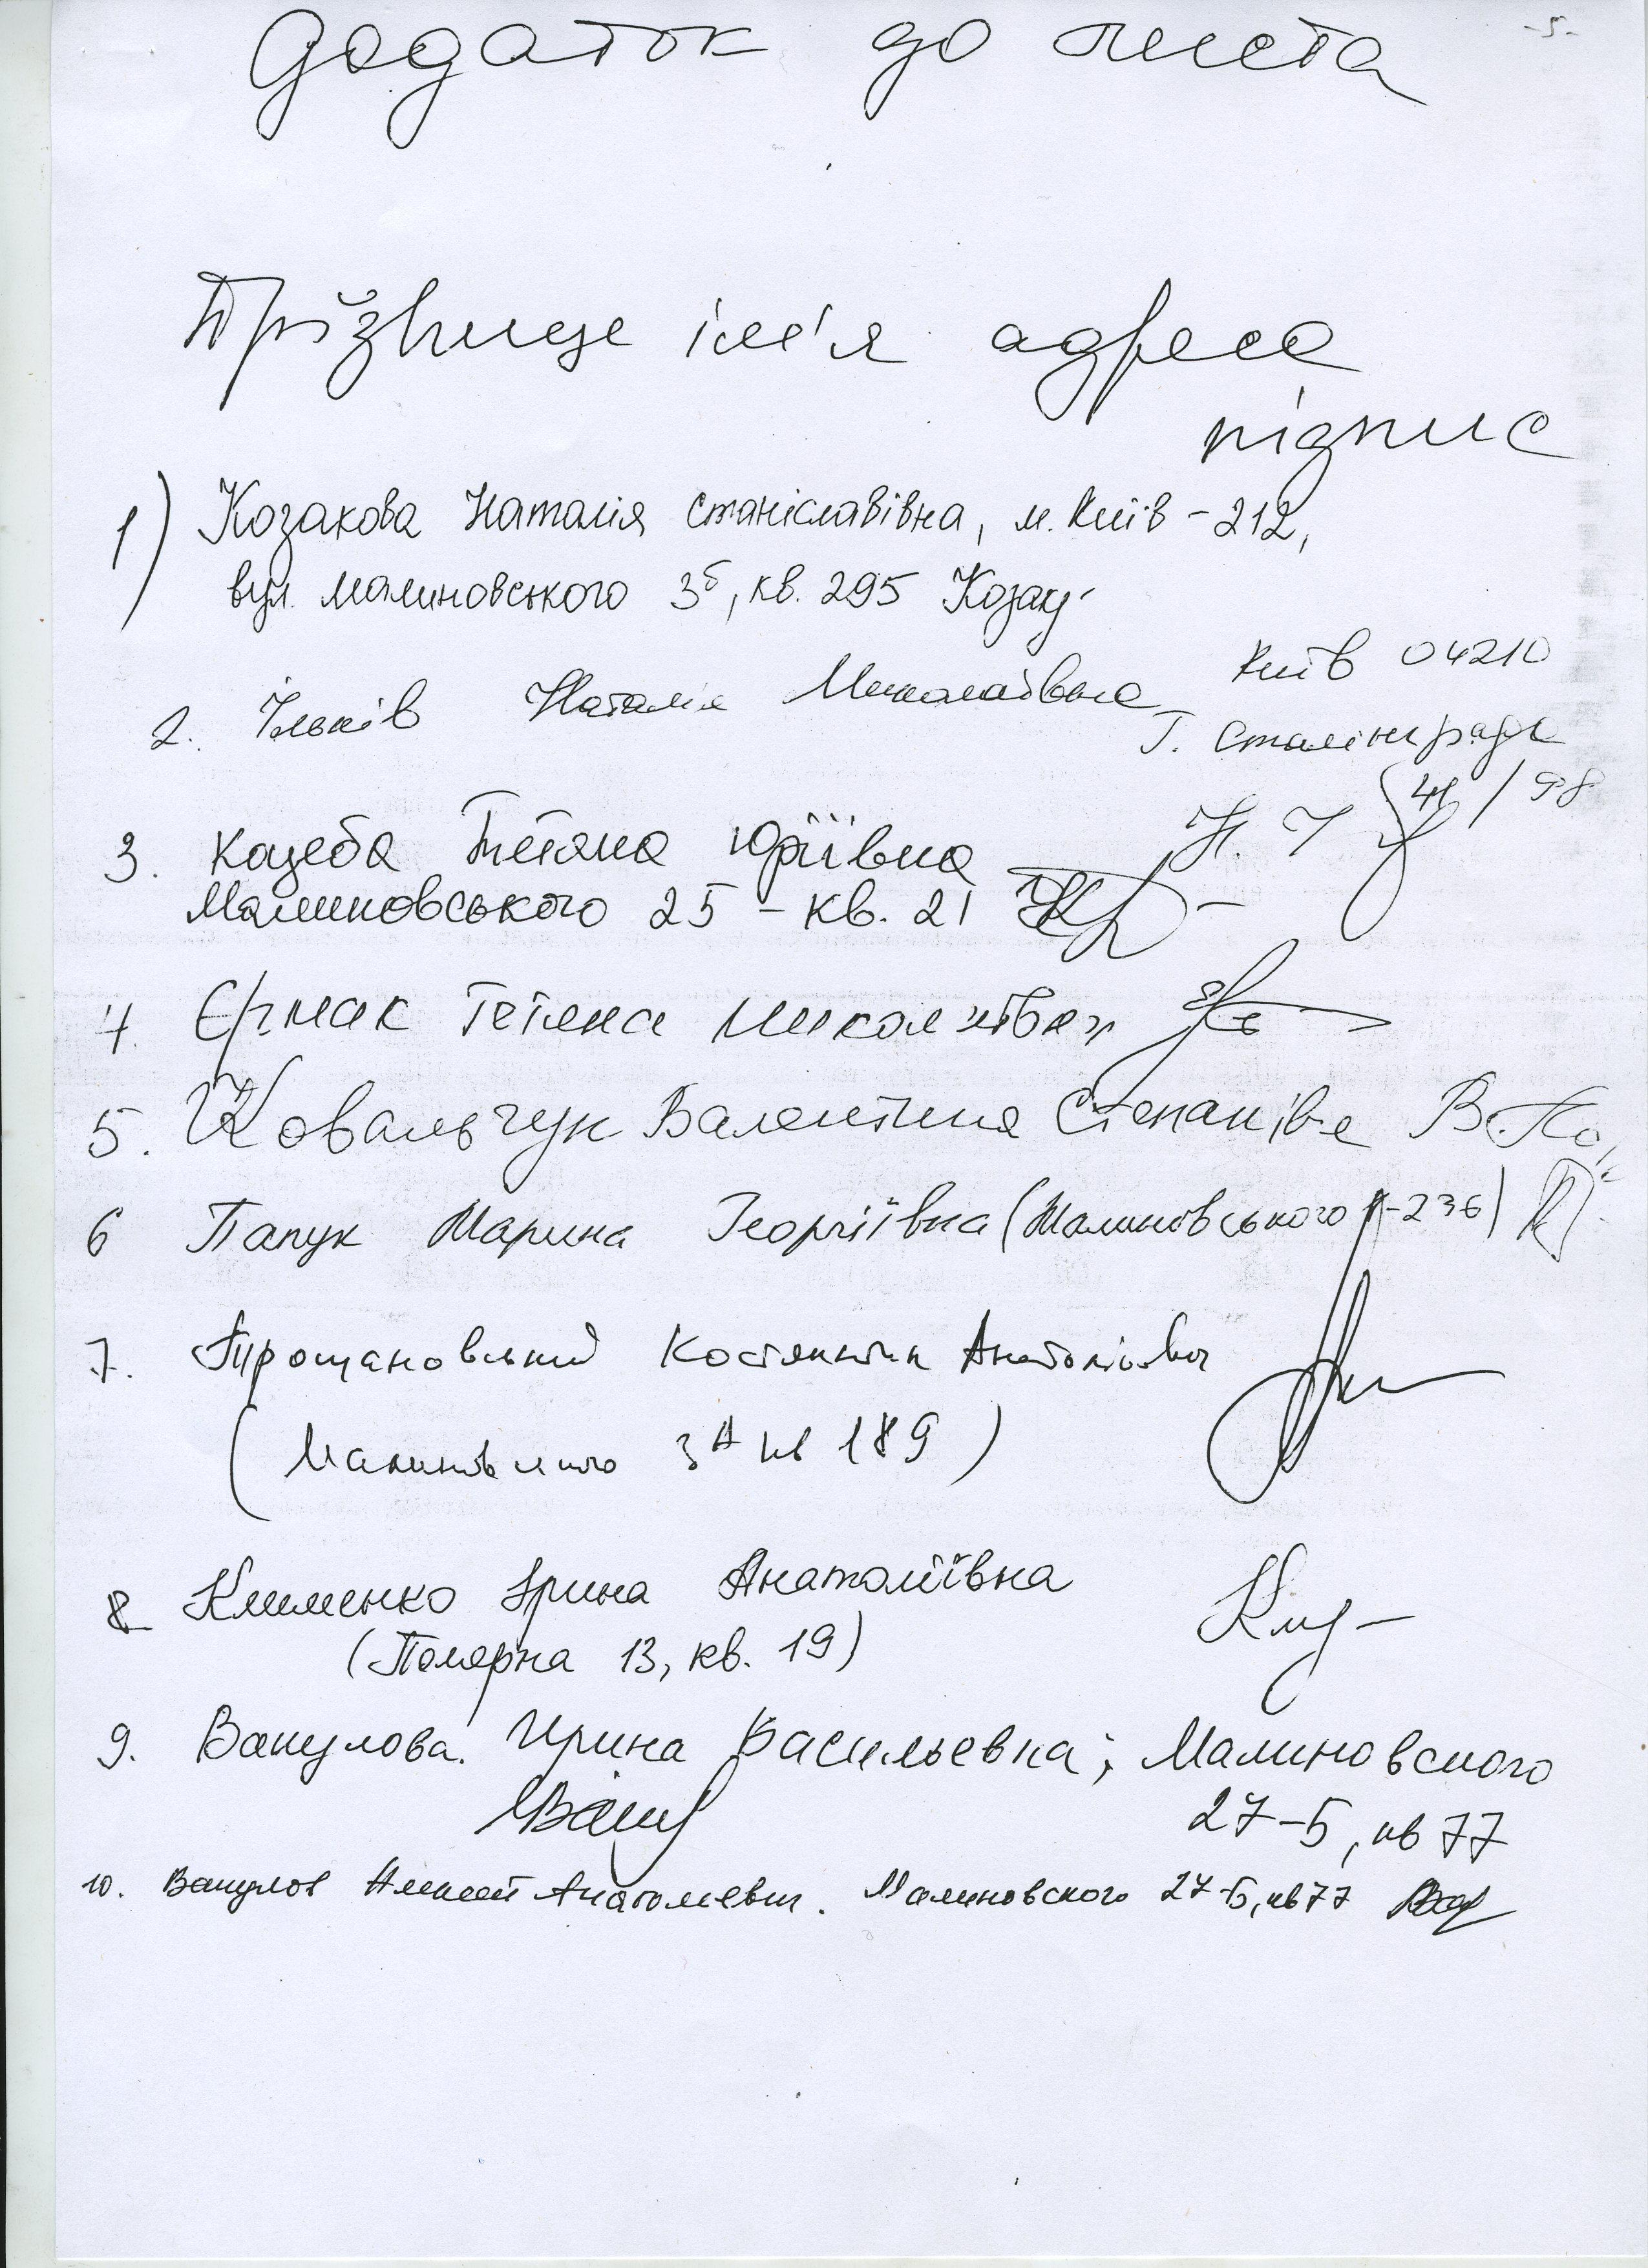 -5-
Додаток до листа
Прізвище ім'я адреса
підпис
1) Козакова Наталія Станіславівна, м. Київ - 212,
вул. Малиновського 3б, кв. 295 Козак
2. Ільків Наталія Миколаївна Київ 04210
Г. Сталінграда
41/98
3. Казеба Тетяна Юріївна
Малиновського 25 - кв. 21
4. Єрмак Тетяна Миколаївна
5. Ковальчук Валентина Степанівна
6 Папук Марина Георгіївна (Малиновського 236)
7. Трощановський Костянтин Анатолійович
(Малиновського 3А кв 189)
8 Клименко Ірина Анатоліївна
(Полярна 13, кв. 19)
9. Вакулова Ирина Васильевна; Малиновского
27-Б, кв 77
10. Вакулов Алексей Анатольевич. Малиновского 27-Б, кв 77